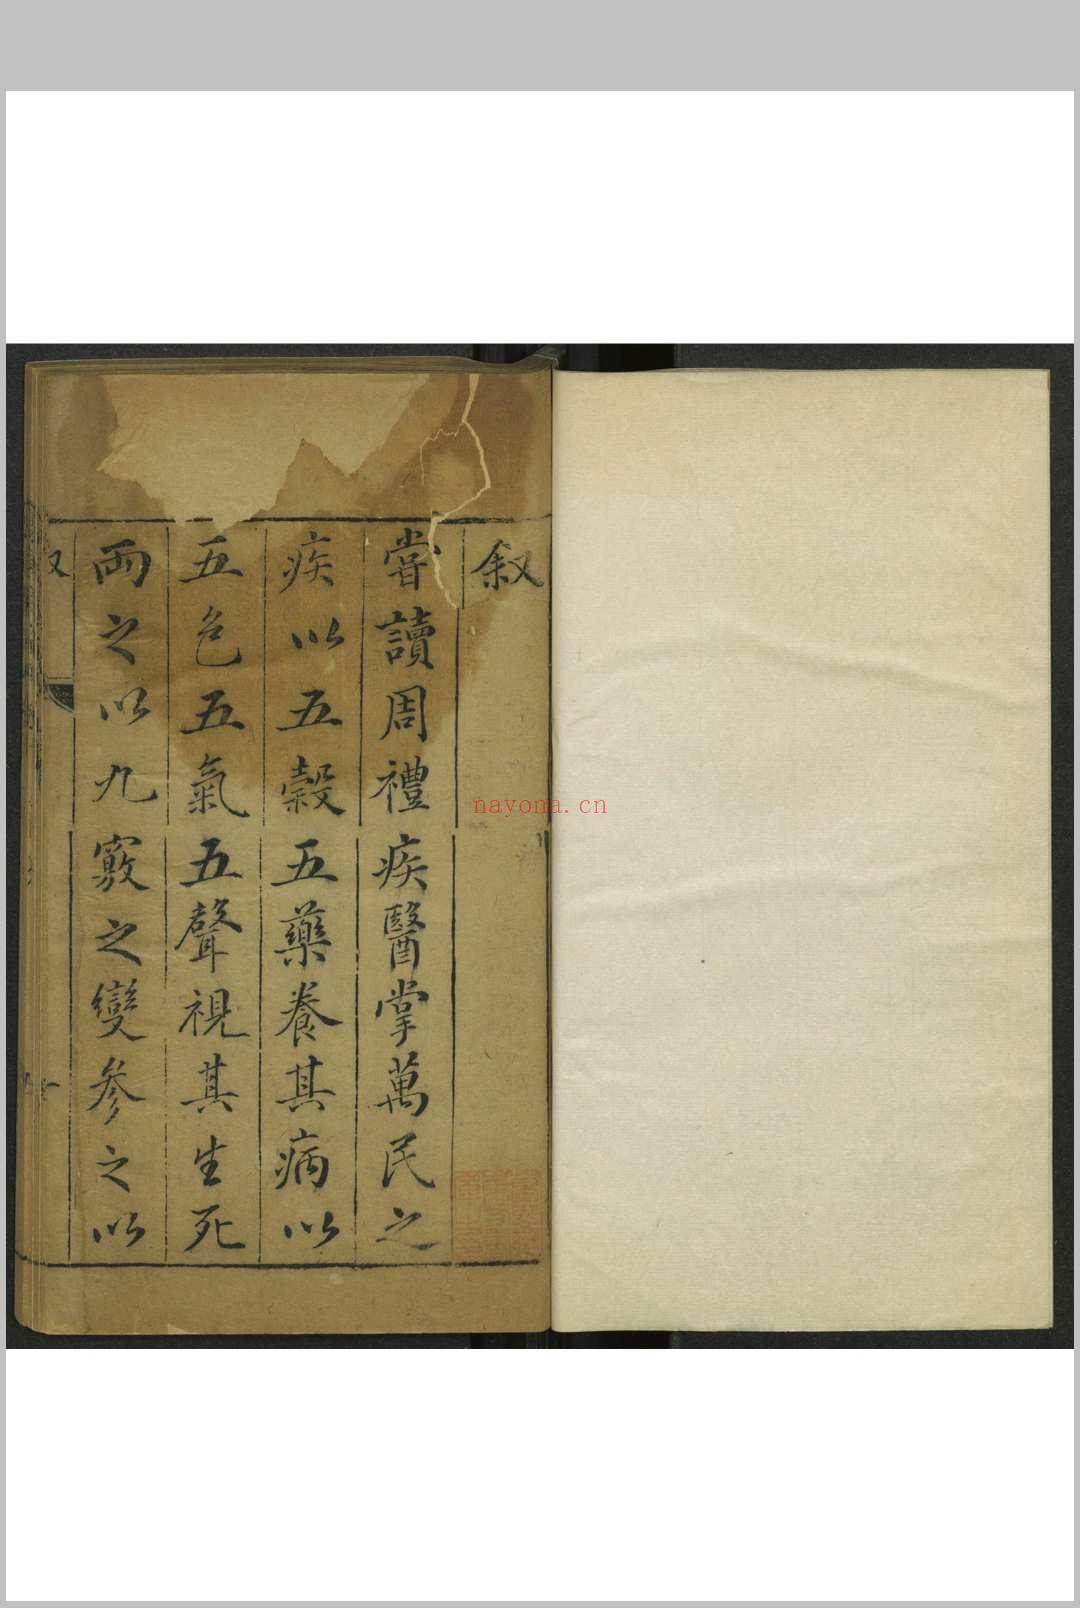 叙
嘗讀周禮疾醫掌萬民之
疾以五穀五藥養其病以
五色五氣五聲視其生死
兩之以九竅之變參之以
nayona.cn